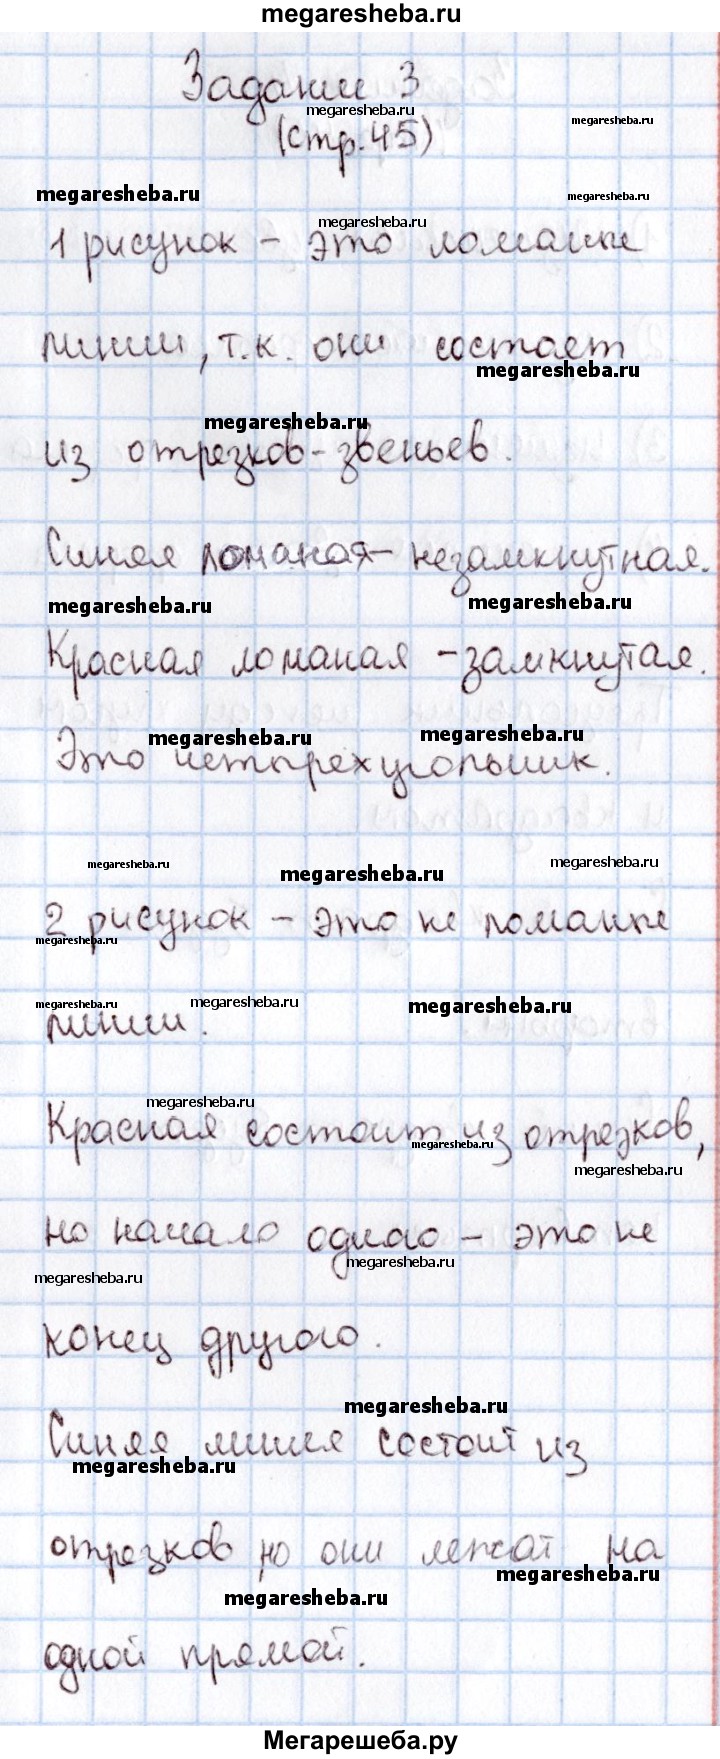 megaresheba.ru
Задании 3
megaresheba.ru
megaresheba.ru
(стр.45)
megaresheba.ru
megaresheba.ru
megaresheba.ru
1 рисунок - это ломаные
линии, т.к. они состает
megaresheba.ru
megaresheba.ru
из отрезков-звеньев.
Синяя ломаная - незамкнутная.
megaresheba.ru
megaresheba.ru
Красная ломаная - замкнутая.
megaresheba.ru
megaresheba.ru
Это четырехугольник.
megaresheba.ru
megaresheba.ru
megaresheba.ru
2 рисунок - это не ломаные
megaresheba.ru
megaresheba.ru
megaresheba.ru
megaresheba.ru
линии.
megaresheba.ru
Красная состоит из отрезков,
megaresheba.ru
megaresheba.ru
но начало одного - это не
megaresheba.ru
megaresheba.ru
конец другого.
megaresheba.ru
Синяя линия состоит из
megaresheba.ru
отрезков но они лежат на
megaresheba.ru
megaresheba.ru
одной прямой.
Мегарешеба.ру